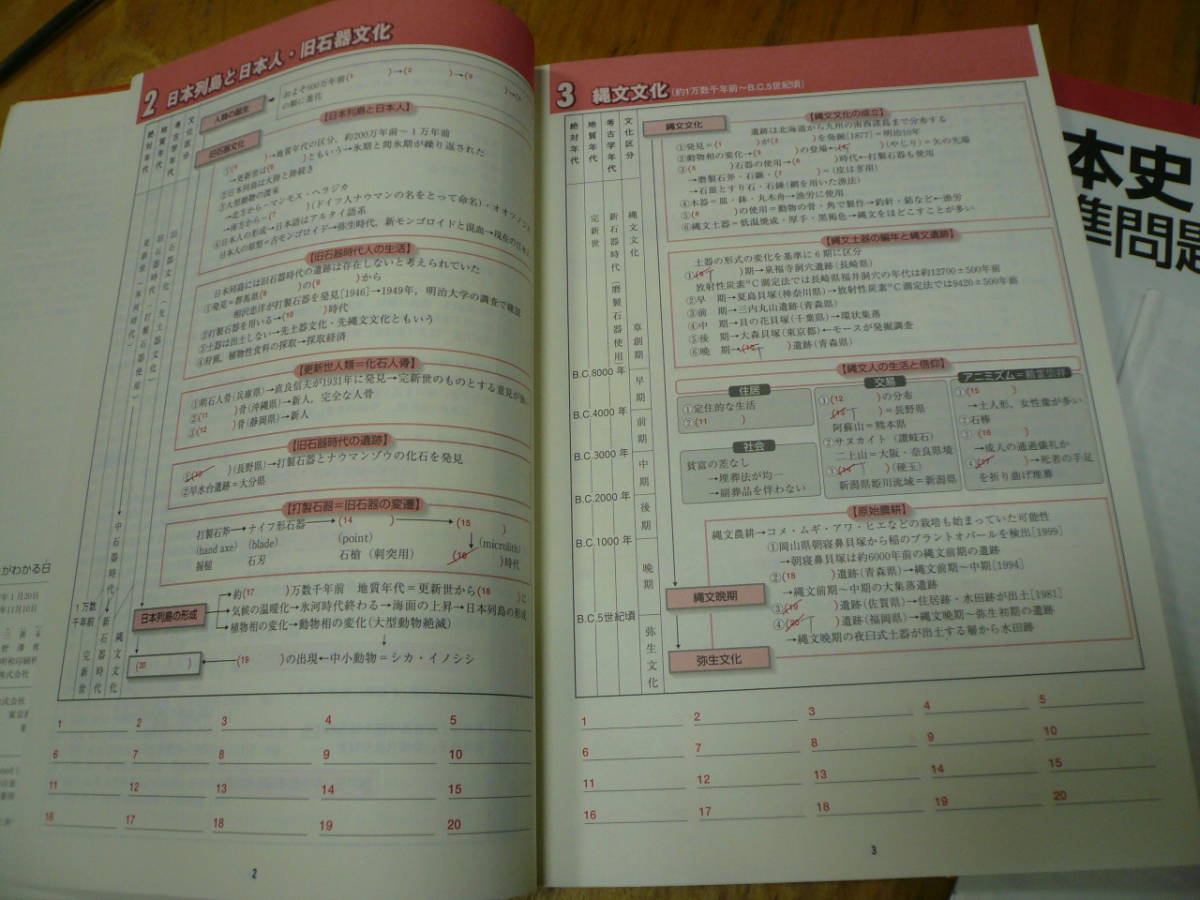 2 日本列島と日本人・旧石器文化
絶対年代
地質年代
考古学年代
文化区分
人類の誕生
およそ500万年前(1 )→(2 )→(3
の順に進化
旧石器文化
【日本列島と日本人】
→地質年代の区分，約200万年前～1万年前
→更新世は(5 )ともいう→氷期と間氷期が繰り返された
②日本列島は大陸と陸続き
③大型動物の渡来
→北方から―マンモス・ヘラジカ
→南方から―(7 )(ドイツ人ナウマンの名をとって命名)・オオツノジカ
④日本人の形成→日本語はアルタイ語系
日本人の原型=古モンゴロイド→弥生時代，新モンゴロイドと混血→現在の日本人
【旧石器時代人の生活】
日本列島には旧石器時代の遺跡は存在しないと考えられていた
①発見=群馬県(8 )の(9 )から
相沢忠洋が打製石器を発見[1946]→1949年，明治大学の調査で確認
②打製石器を用いる→(10 )時代
③土器は出土しない→先土器文化・先縄文文化ともいう
④狩猟，植物性食料の採取→採取経済
【更新世人類=化石人骨】
①明石人骨(兵庫県)→直良信夫が1931年に発見→完新世のものとする意見が強い
②(11 )骨(沖縄県)→新人，完全な人骨
③(12 )骨(静岡県)→新人
【旧石器時代の遺跡】
①(13 )(長野県)→打製石器とナウマンゾウの化石を発見
②早水台遺跡=大分県
【打製石器=旧石器の変遷】
打製石斧→ナイフ形石器→(14 )→(15 )
(hand axe) (blade) (point) (microlith)
握槌 石刃 石槍(刺突用) (16 )時代
日本列島の形成
約(17 )万数千年前 地質年代=更新世から(18 )に
気候の温暖化→氷河時代終わる→海面の上昇→日本列島の形成
植物相の変化→動物相の変化(大型動物絶滅)
(20 )
(19 )の出現←中小動物=シカ・イノシシ
更新世(氷河時代)
旧石器文化(先土器文化)
中石器時代
新石器時代
縄文文化
1万数千年前
完新世
1 2 3 4 5
6 7 8 9 10
11 12 13 14 15
16 17 18 19 20
2
3 縄文文化(約1万数千年前～B.C.5世紀頃)
絶対年代
地質年代
考古学年代
文化区分
縄文文化
【縄文文化の成立】
遺跡は北海道から九州の南西諸島まで分布する
①発見=(1 )が(2 )を発掘[1877]=明治10年
②動物相の変化→(3 )の登場←(4 )(やじり)=矢の先端
③(5 )石器の使用→(6 )時代←打製石器も使用
→磨製石斧・石鏃・(7 )=(皮はぎ用)
→石皿とすり石・石錘(網を用いた漁法)
④木器=皿・鉢・丸木舟→漁労に使用
⑤(8 )の使用=動物の骨・角で製作→釣針・銛など←漁労
⑥縄文土器=低温焼成・厚手・黒褐色→縄文をほどこすことが多い
【縄文土器の編年と縄文遺跡】
土器の形式の変化を基準に6期に区分
①(9 )期→泉福寺洞穴遺跡(長崎県)
放射性炭素¹⁴C測定法では長崎県福井洞穴の年代は約12700±500年前
②早 期→夏島貝塚(神奈川県)→放射性炭素¹⁴C測定法では9420±500年前
③前 期→三内丸山遺跡(青森県)
④中 期→貝の花貝塚(千葉県)→環状集落
⑤後 期→大森貝塚(東京都)←モースが発掘調査
⑥晩 期→(10 )遺跡(青森県)
【縄文人の生活と信仰】
住居
①定住的な生活
②(11 )
社会
貧富の差なし
→埋葬法が均一
→副葬品を伴わない
交易
①(12 )の分布
(13 )=長野県
阿蘇山=熊本県
②サヌカイト(讃岐石)
二上山=大阪・奈良県境
③(14 )(硬玉)
新潟県姫川流域=新潟県
アニミズム=精霊崇拝
①(15 )
→土人形，女性像が多い
②石棒
③(16 )
→成人の通過儀礼か
④(17 )→死者の手足
を折り曲げ埋葬
【原始農耕】
縄文農耕→コメ・ムギ・アワ・ヒエなどの栽培も始まっていた可能性
①岡山県朝寝鼻貝塚から稲のプラントオパールを検出[1999]
→朝寝鼻貝塚は約6000年前の縄文前期の遺跡
②(18 )遺跡(青森県)→縄文前期～中期[1994]
→縄文前期～中期の大集落遺跡
③(19 )遺跡(佐賀県)→住居跡・水田跡が出土[1981]
④(20 )遺跡(福岡県)→縄文晩期～弥生初期の遺跡
→縄文晩期の夜臼式土器が出土する層から水田跡
縄文晩期
弥生文化
完新世
新石器時代(磨製石器使用)
縄文文化
草創期
B.C.8000年
早期
B.C.4000年
前期
B.C.3000年
中期
B.C.2000年
後期
B.C.1000年
晩期
B.C.5世紀頃
弥生文化
1 2 3 4 5
6 7 8 9 10
11 12 13 14 15
16 17 18 19 20
3
本史
準問題
がわかる日